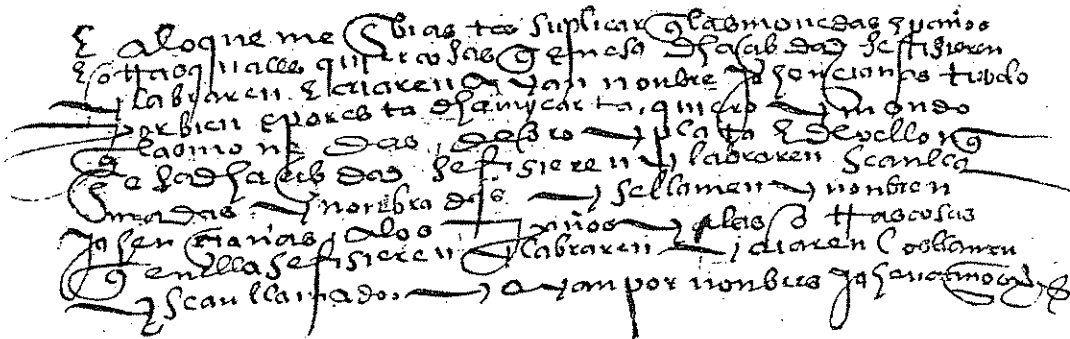 E a lo que me enbiastes suplicar q̃ las monedas e paños
e otras quales quier cosas q̃ en esa dha cibdad se fisieren
labraren e criaren ayan nonbre Jahencianas tuvelo
por bien e por esta dha my carta quiero y mando
q̃ las monedas de oro y plata e de vellon q̃
en esa dha cibdad se fisieren y labraren sean lla
madas y nonbradas y se llamen y nonbren
Jahencianas a los paños y a las otras cosas
q̃ en ella se fisieren labraren y criaren los llamen
y sean llamados y ayan por nonbres